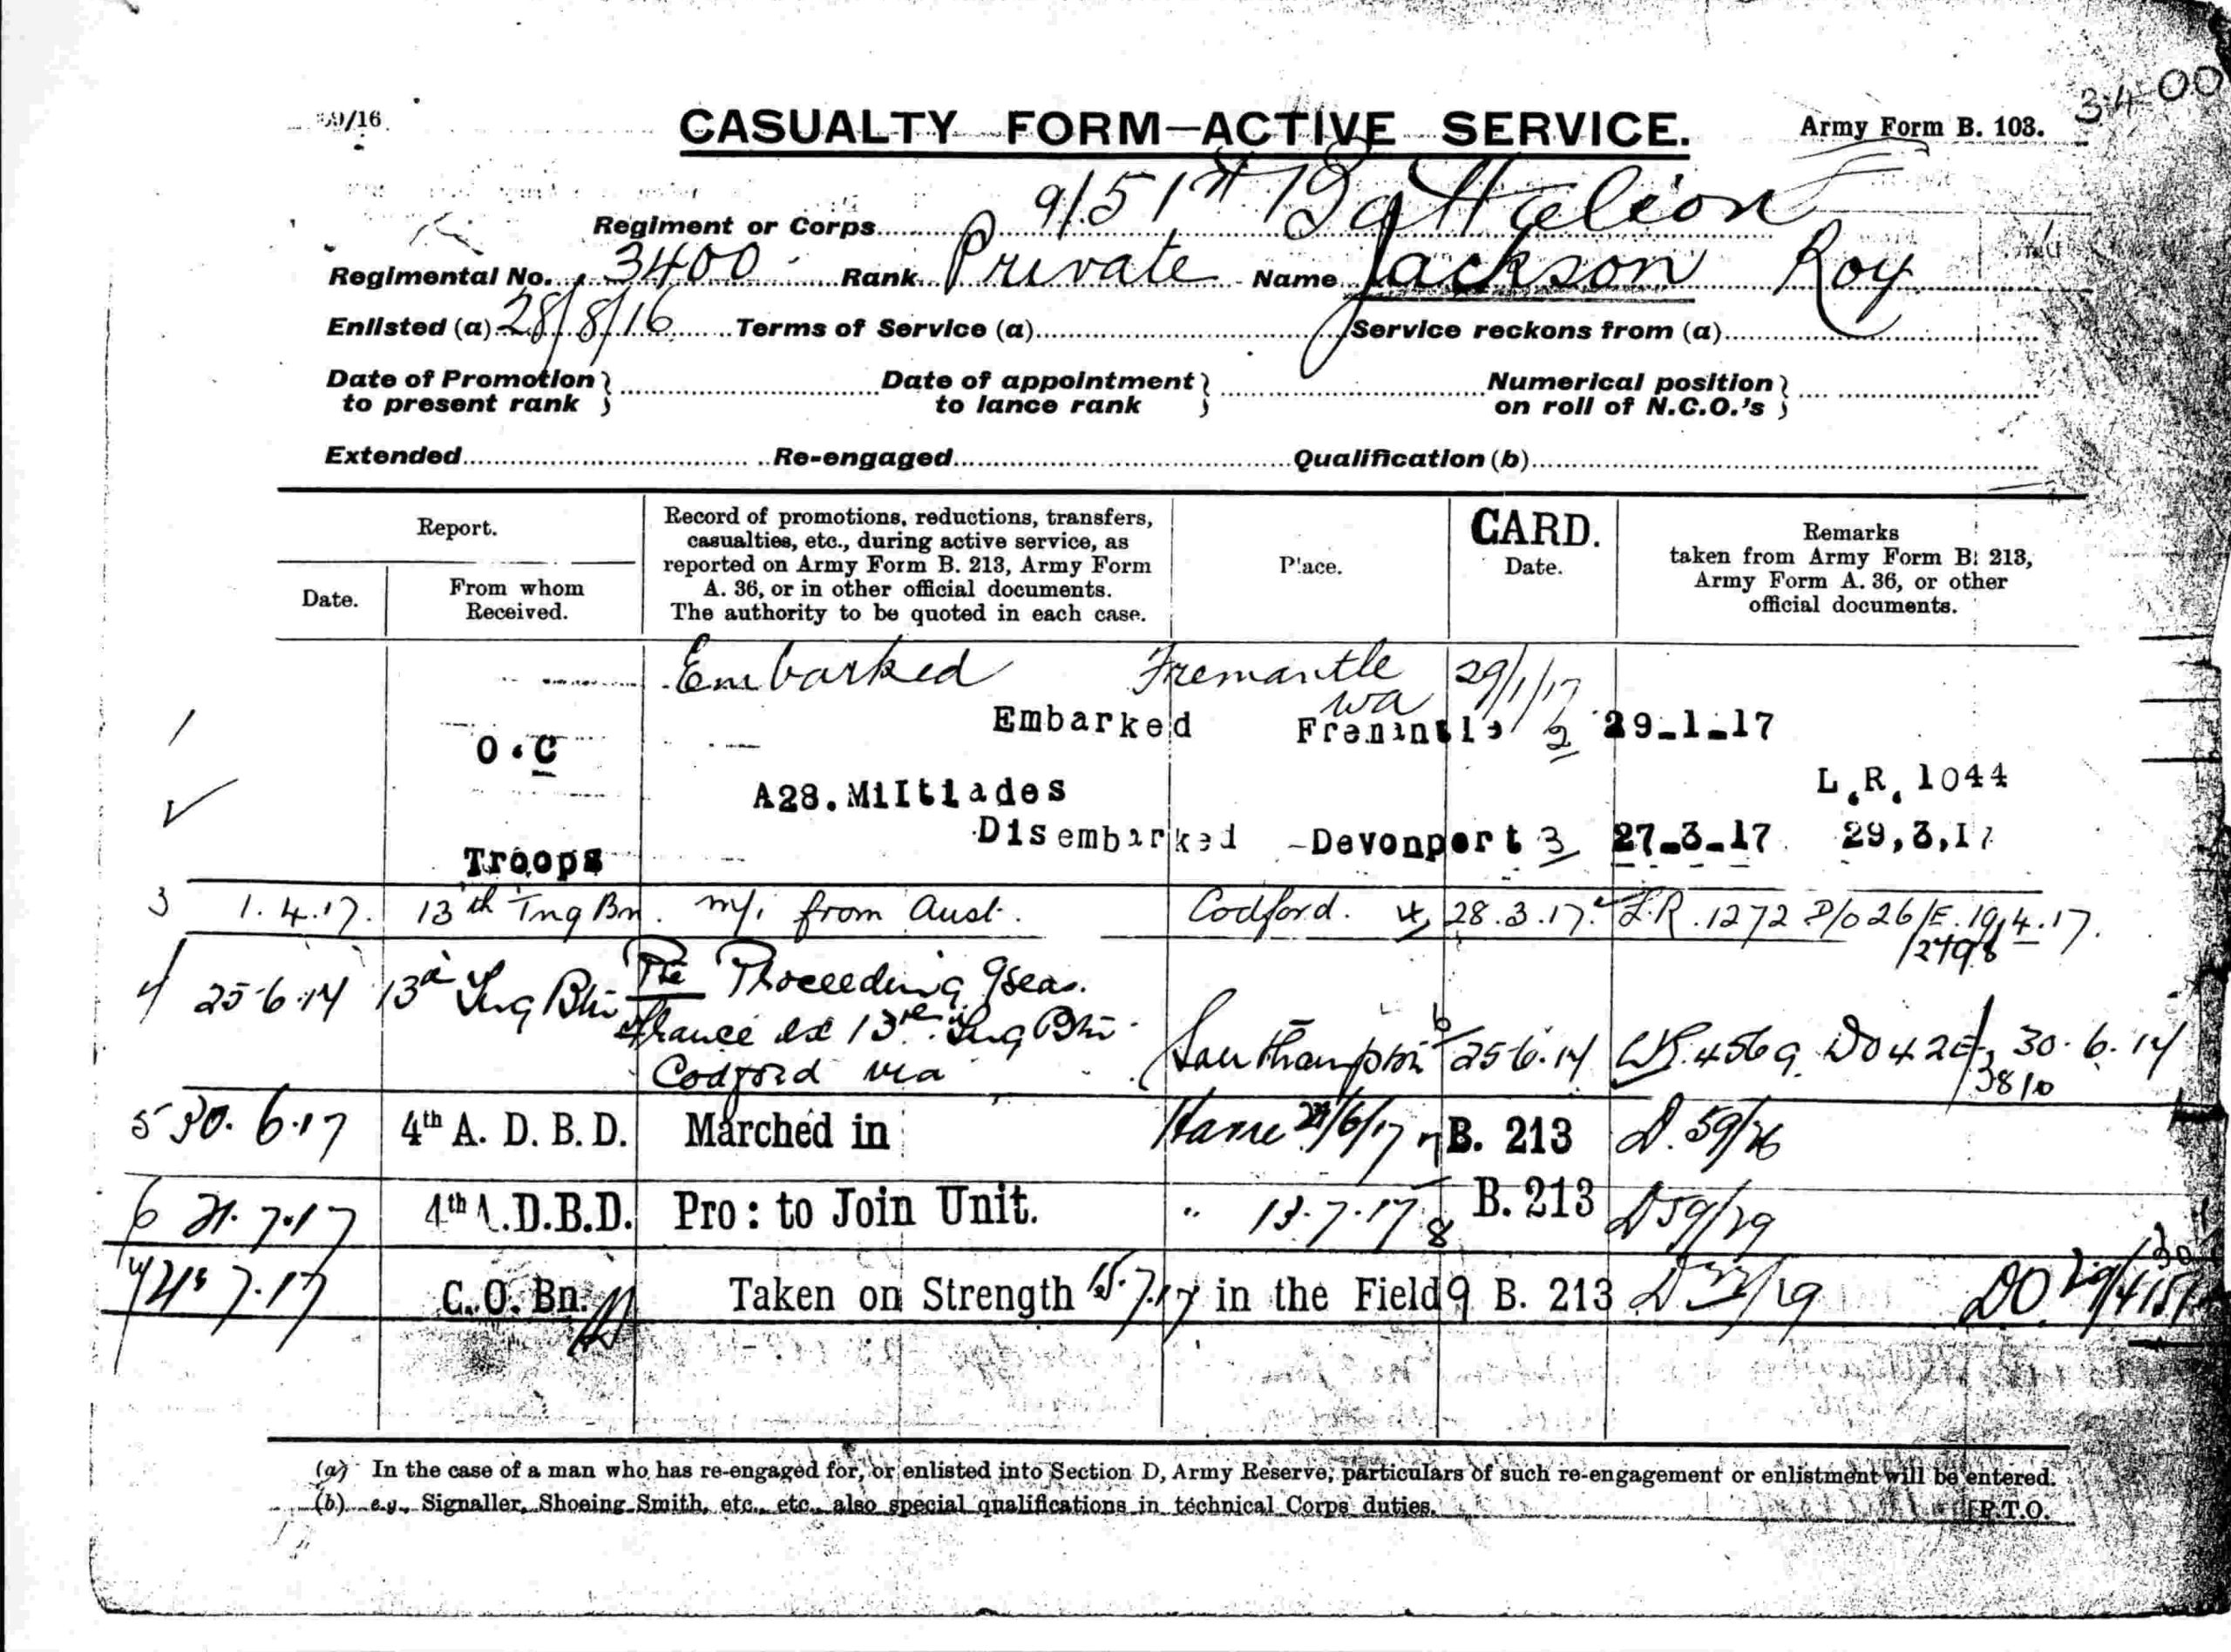 3400
9/16
CASUALTY FORM—ACTIVE SERVICE.
Army Form B. 103.
Regiment or Corps 9/51st Battalion
Regimental No. 3400 Rank Private Name Jackson Roy
Enlisted (a) 28/8/16 Terms of Service (a) Service reckons from (a)
Date of Promotion to present rank } Date of appointment to lance rank } Numerical position on roll of N.C.O.'s }
Extended Re-engaged Qualification (b)
Report.
Date.
From whom Received.
Record of promotions, reductions, transfers,
casualties, etc., during active service, as
reported on Army Form B. 213, Army Form
A. 36, or in other official documents.
The authority to be quoted in each case.
Place.
CARD.
Date.
Remarks
taken from Army Form B. 213,
Army Form A. 36, or other
official documents.
Embarked Fremantle 29/1/17
WA
O.C Embarked 2 29-1-17
A28. Miltiades L.R. 1044
Troops Disembarked Devonport 3 27-3-17 29,3,17
3 1.4.17. 13th Tng Bn. M/i from Aust. Codford. 4 28.3.17. L.R. 1272 D/o 26/E. 19.4.17.
/2498
4 25.6.17 13th Tng Btn Proceeding Oseas.
France ex 13th Tng Btn
Codford via Southampton 6 25.6.17 4569 DO 42 30.6.17
3810
5 30.6.17 4th A. D. B. D. Marched in Havre /6/17 7 B. 213 D. 59/26
6 21.7.17 4th A.D.B.D. Pro: to Join Unit. " 13.7.17 8 B. 213 D59/29
7 21.7.17 C. O. Bn. Taken on Strength 15.7.17 in the Field 9 B. 213 /29 DO
(a) In the case of a man who has re-engaged for, or enlisted into Section D, Army Reserve, particulars of such re-engagement or enlistment will be entered.
(b) e.g., Signaller, Shoeing Smith, etc., etc., also special qualifications in technical Corps duties.
[P.T.O.